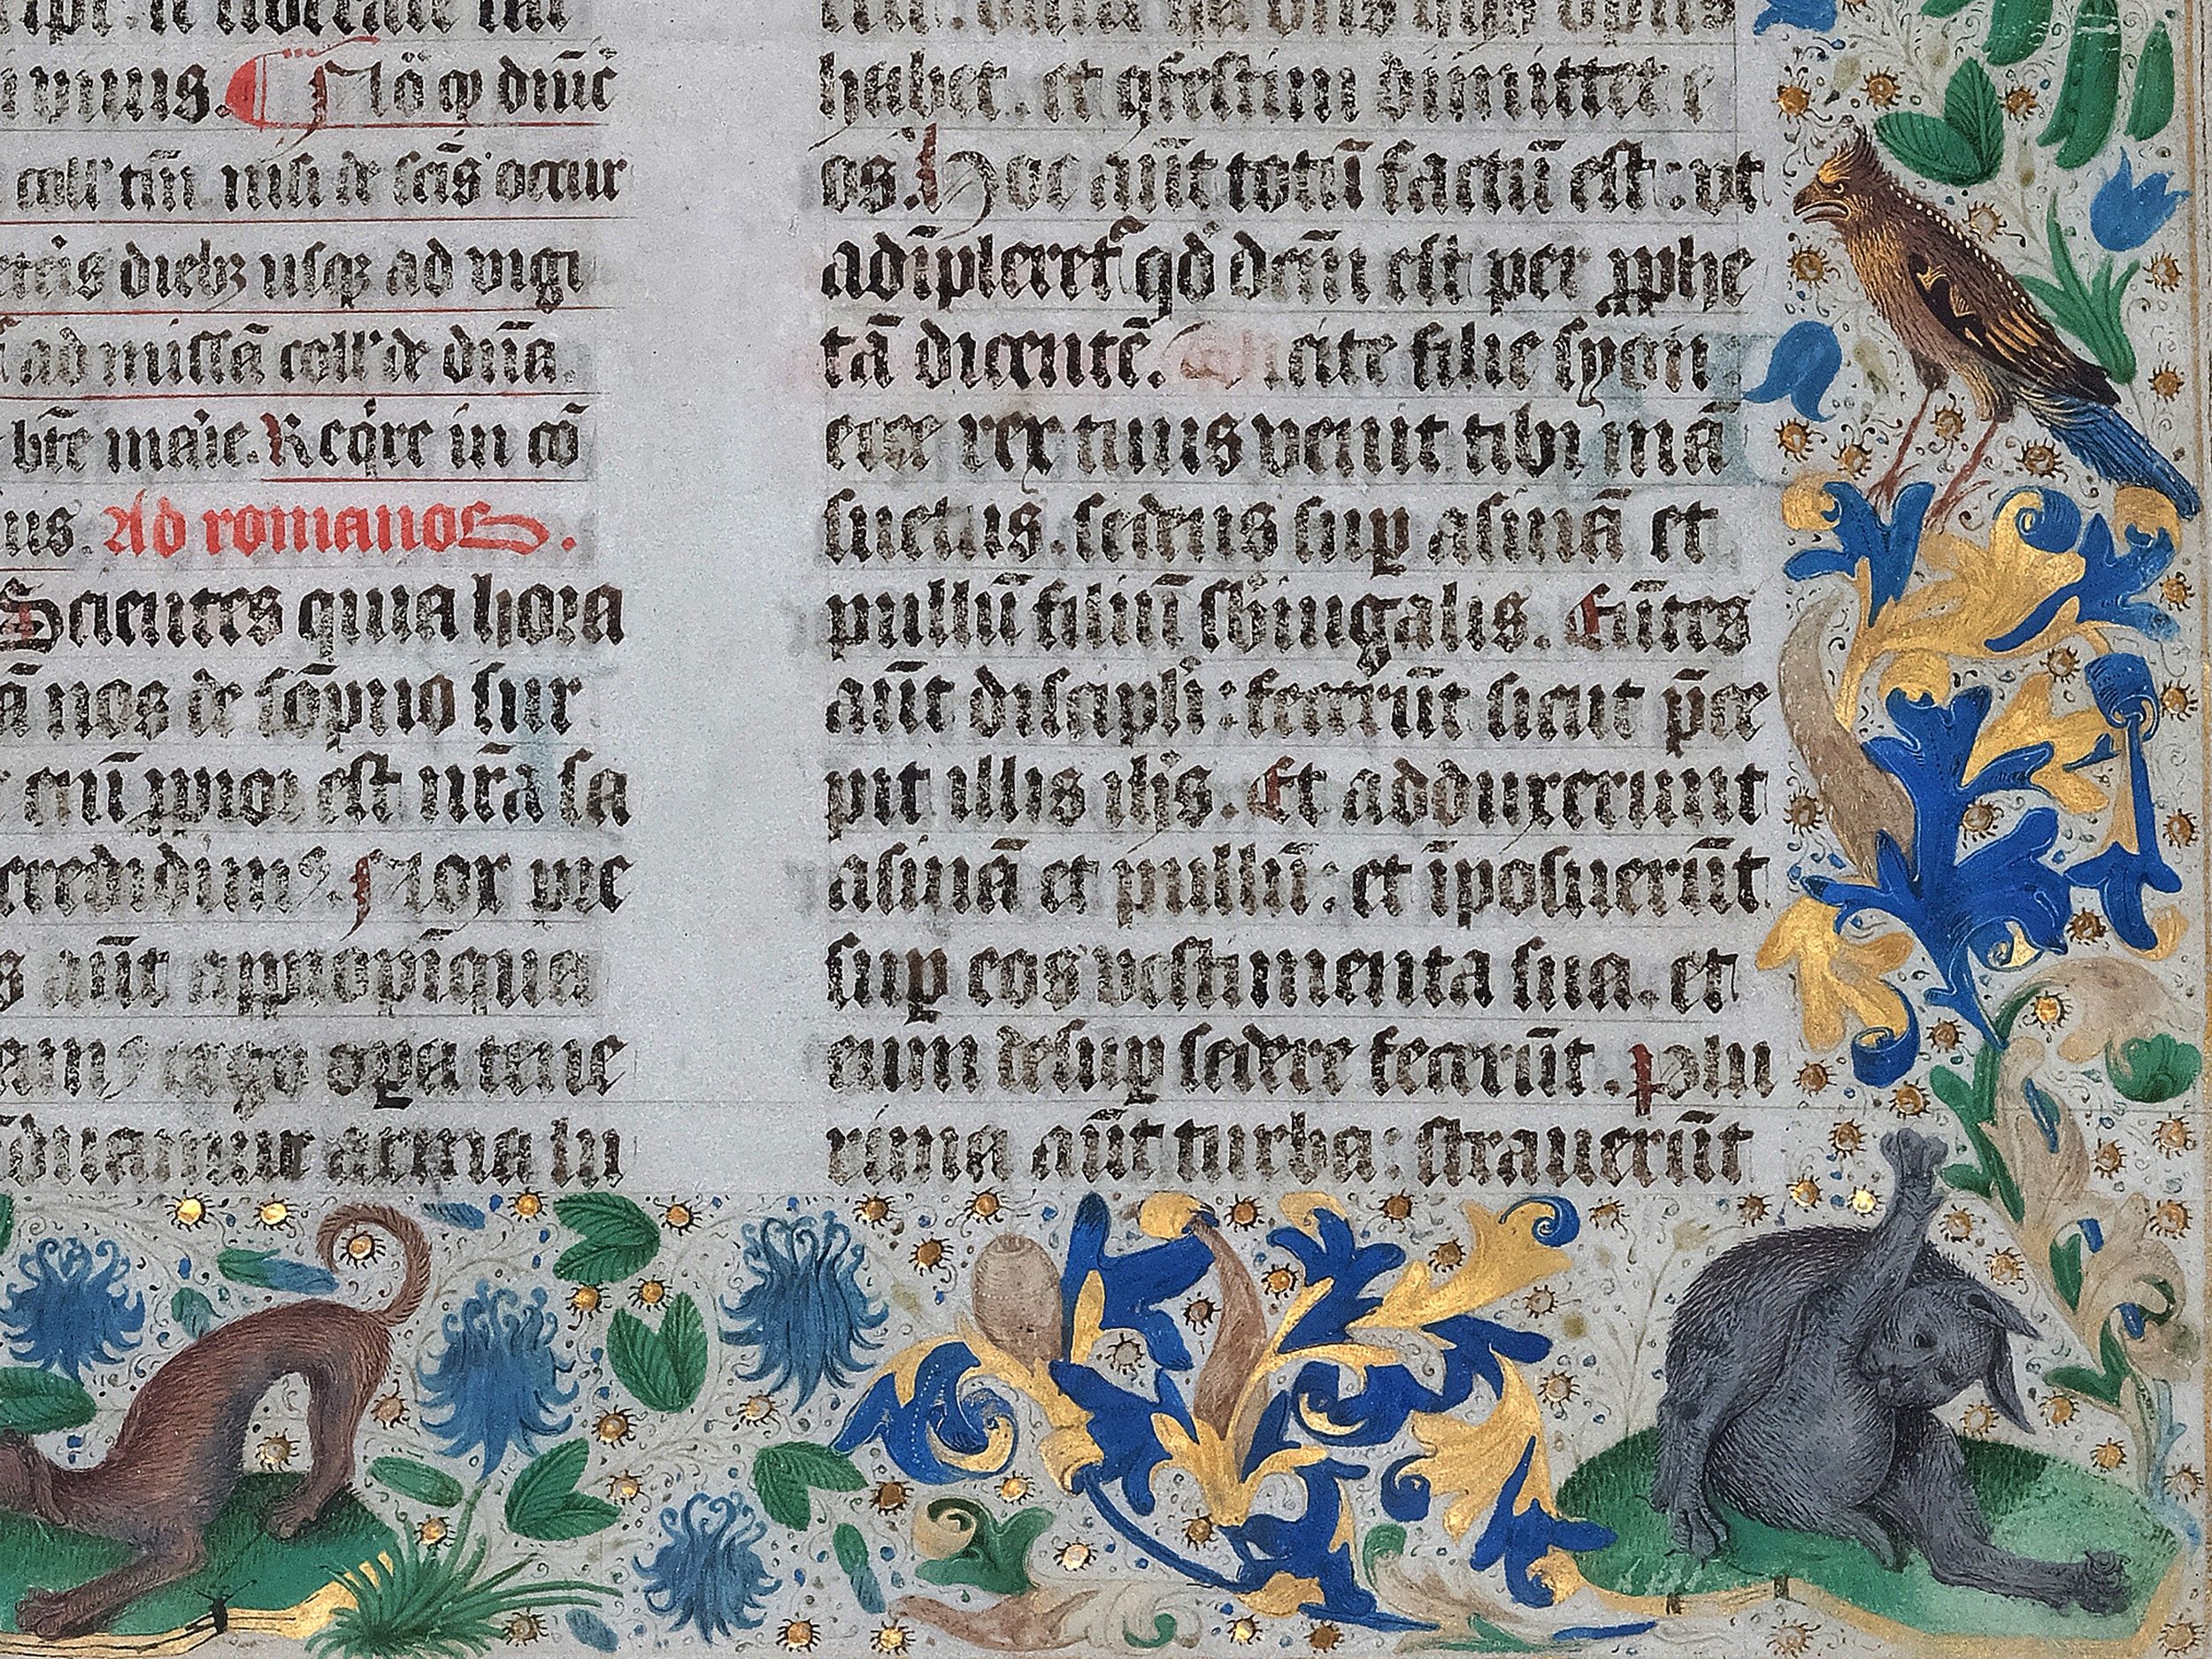 vinus. Nõ qͥ dnĩc
coll' tm̃ nisi de scĩs occur
dieb₃ usq₃ ad vigi
ad missã coll' de dnã.
btẽ marie. Reqͥre in cõ
us. Ad romanos.
Scientes quia hora
nos de sõpno sur
cũ ꝓpior est nr̃a sa
credidim⁹. Nox pre
s aũt appropĩqua
ergo oꝑa tene
duamur arma lu
habet. et ꝯfestim dimittet e
os. Hoc aũt totũ factũ est: ut
adĩpleret᷑ qd̃ dcm̃ est per ꝓphe
tã dicentẽ. Dicite filie syon
ecce rex tuus venit tibi mã
suetus. sedens suꝑ asinã et
pullũ filiũ sbiugalis. Eũtes
aũt discipli: fecerũt sicut p̃ce
pit illis ihs. Et adduxerunt
asinã et pullũ: et ĩposuerũt
suꝑ eos vestimenta sua. et
eum desuꝑ sedere fecerũt. Plu
rima aũt turba: straverũt